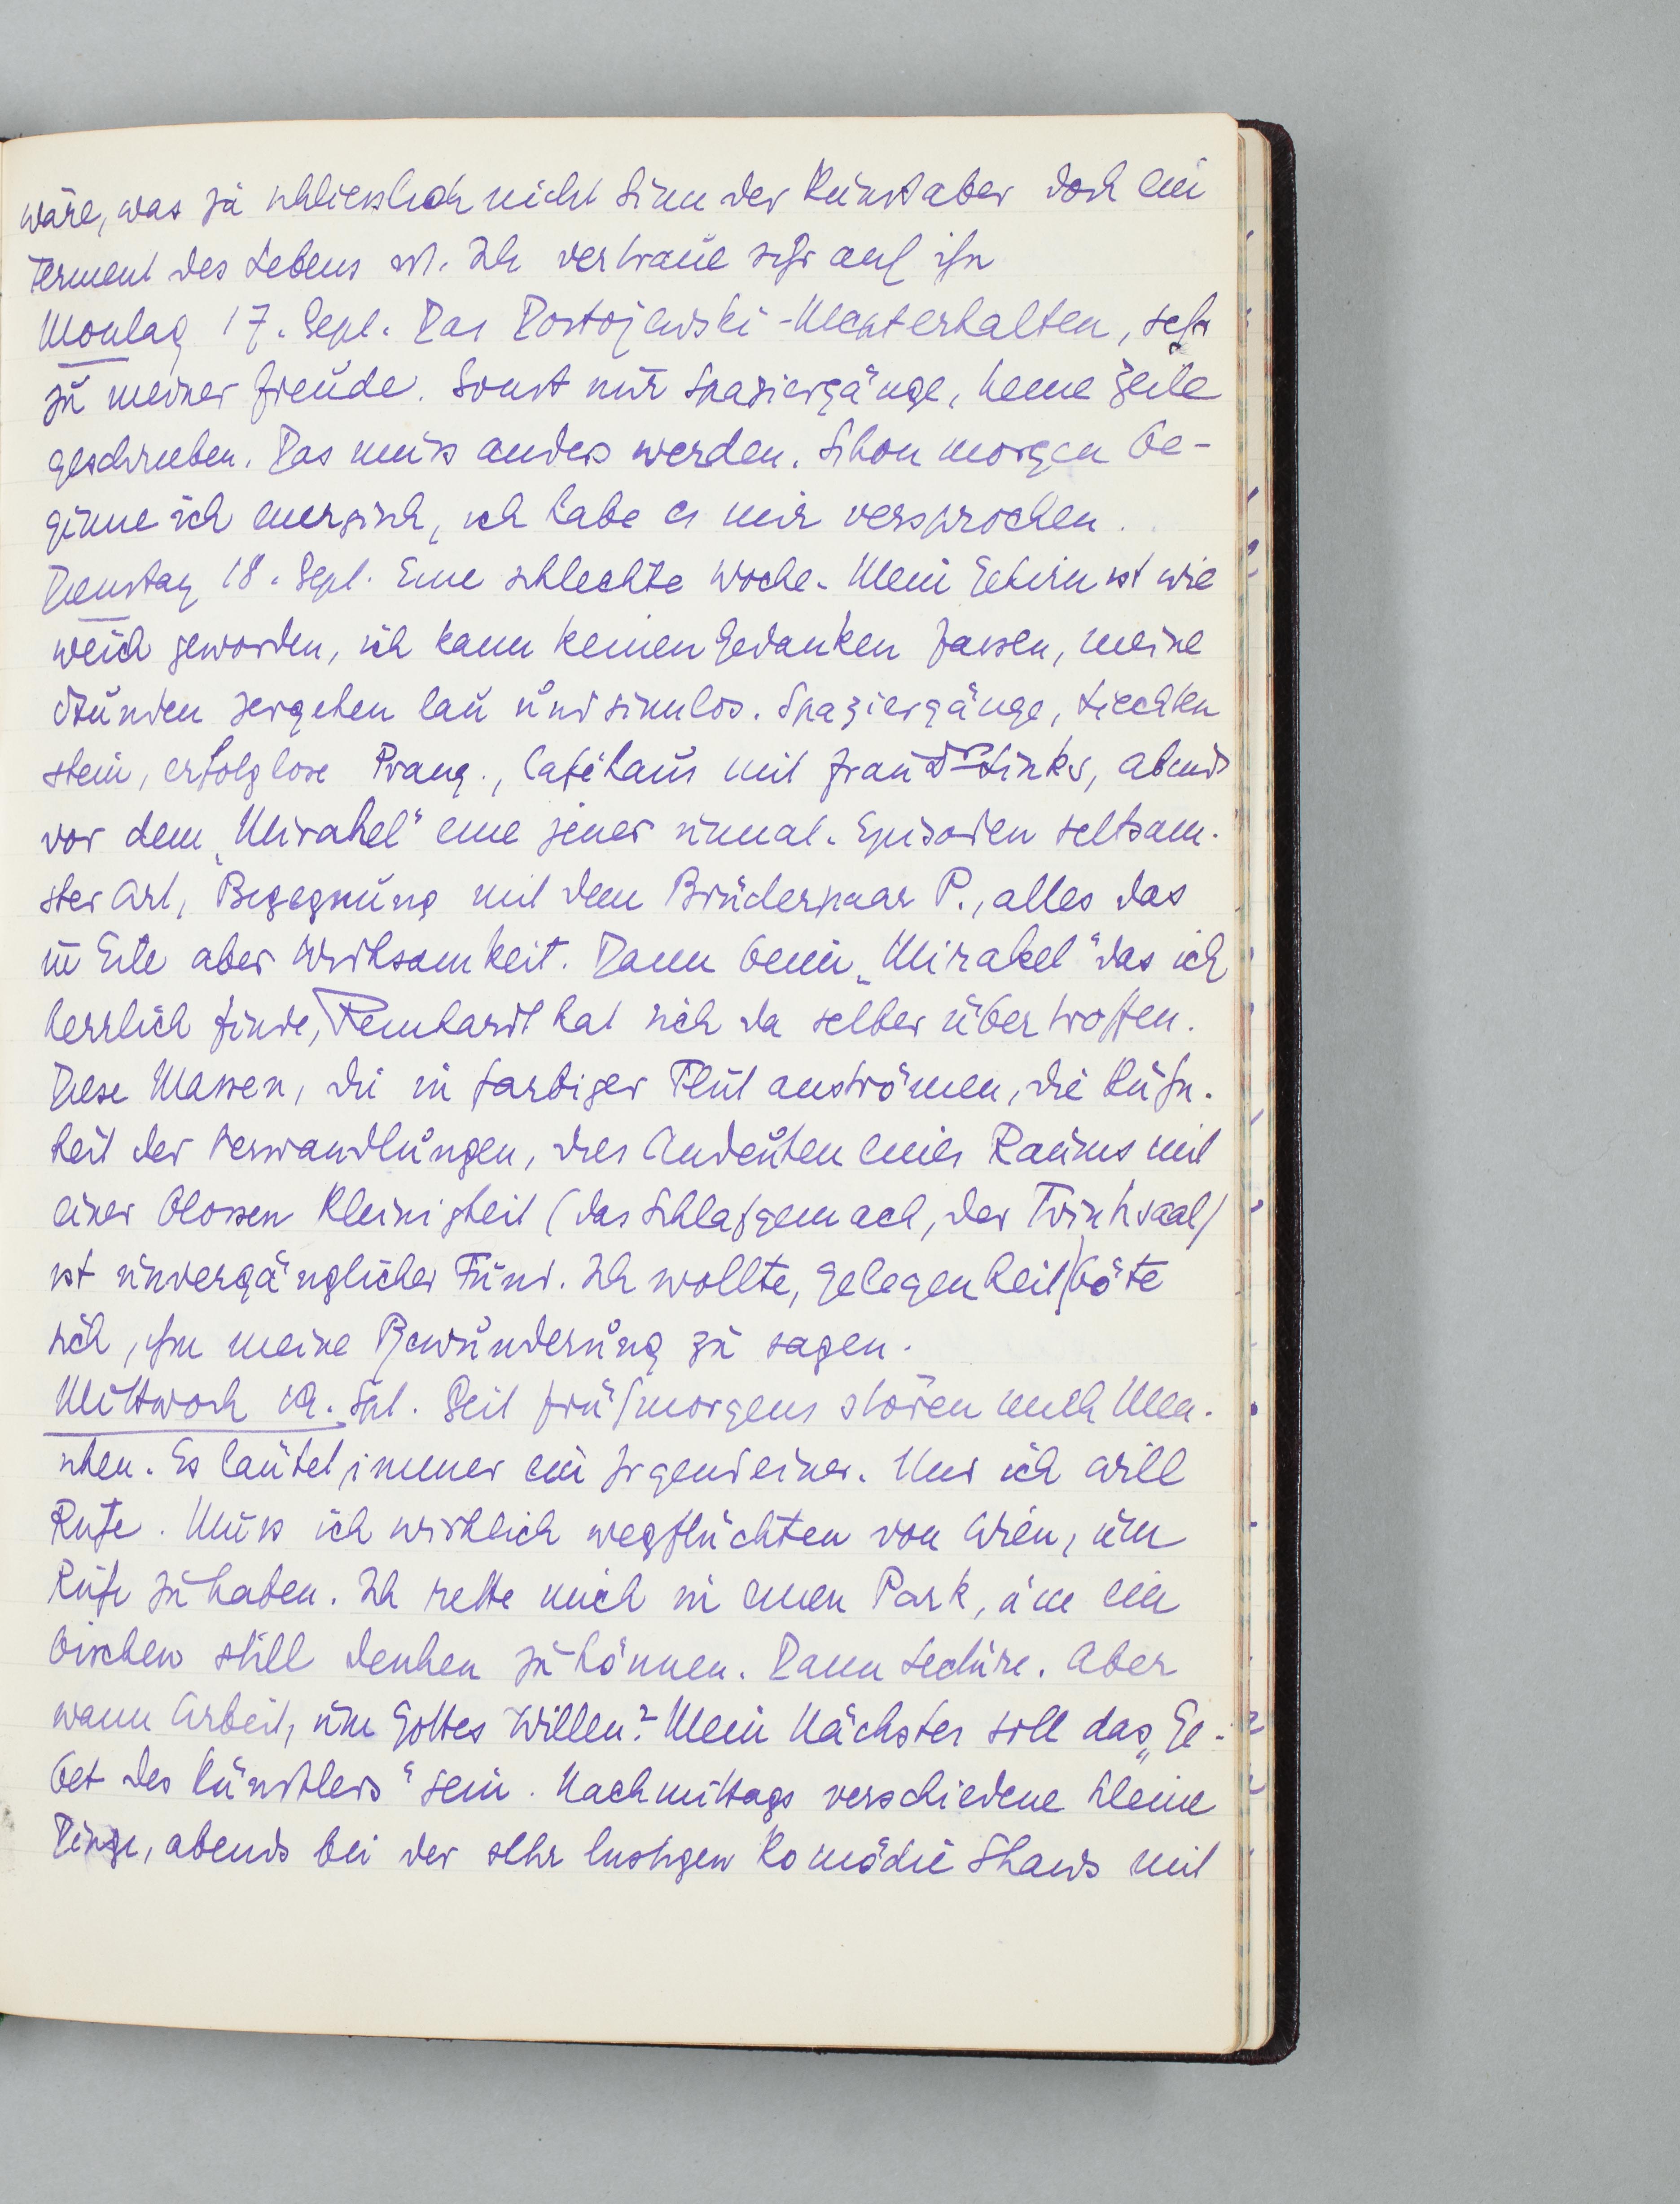 wäre, was ja schliesslich nicht Sinn der Kunst aber doch ein
Ferment des Lebens ist. Ich vertraue sehr auf ihn
Montag 17. Sept. Das Dostojewski-Mscpt erhalten, sehr
zu meiner Freude. Sonst nur Spaziergänge, keine Zeile
geschrieben. Das muss anders werden. Schon morgen be-
ginne ich energisch, ich habe es mir versprochen.
Dienstag 18. Sept. Eine schlechte Woche. Mein Gehirn ist wie
weich geworden, ich kann keinen Gedanken fassen, meine
Stunden zergehen lau und sinnlos. Spaziergänge, Liechten
stein, erfolglose Prang., Caféhaus mit Frau Dr Links, abends
vor dem „Mirakel" eine jener unnat. Episoden seltsam-
ster Art, Begegnung mit dem Brüderpaar P., alles das
in Eile aber Wirksamkeit. Dann beim „Mirakel" das ich
herrlich finde, Reinhardt hat sich da selber übertroffen.
Diese Massen, die in farbiger Flut anströmen, die Kühn-
heit der Verwandlungen, dies Andeuten eines Raums mit
einer blossen Kleinigkeit (das Schlafgemach, der Trinksaal)
ist unvergänglicher Fund. Ich wollte, Gelegenheit böte
sich, ihm meine Bewunderung zu sagen.
Mittwoch 19. Spt. Seit frühmorgens stören mich Men-
schen. Es läutet immer ein Irgendeiner. Und ich will
Ruhe. Muss ich wirklich wegflüchten von Wien, um
Ruhe zu haben. Ich rette mich in einen Park, um ein
bischen still denken zu können. Dann Lectüre. Aber
wann Arbeit, um Gottes Willen? Mein Nächstes soll das „Ge-
bet des Künstlers" sein. Nachmittags verschiedene kleine
Dinge, abends bei der sehr lustigen Komödie Shaws mit